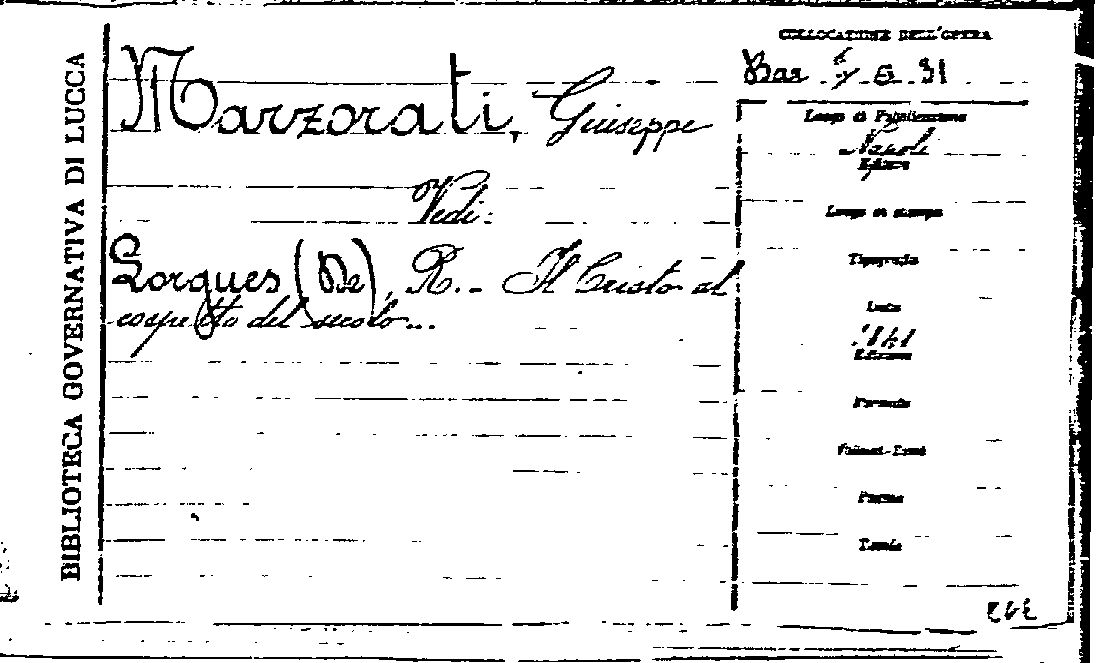 BIBLIOTECA GOVERNATIVA DI LUCCA
COLLOCAZIONE DELL'OPERA
Marzorati, Giuseppe
Vedi:
Lorgues (De), R. - Il Cristo al
cospetto del secolo...
Luogo di Pubblicazione
Napoli
Editore
Luogo di stampa
Tipografia
Data
Edizione
Formato
Volumi-Tomi
Pagine
Tavole